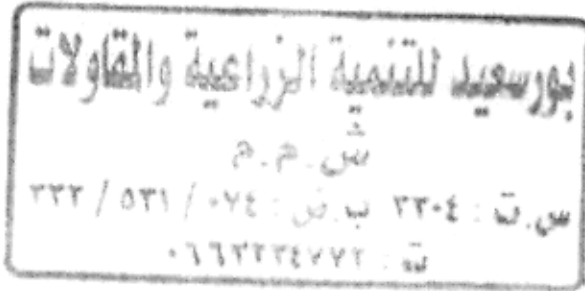 بورسعيد للتنمية الزراعية والمقاولات
ش.م.م
س.ت : ٢٣٠٤ ب.ض : ٠٧٤ / ٥٣١ / ٢٢٢
ت : ٠٦٦٣٢٣٤٧٧٢